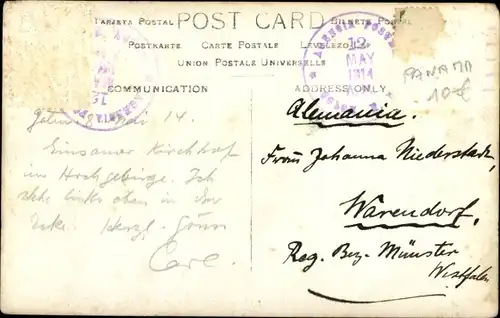 TARJETA POSTAL POST CARD BILHETE POSTAL
POSTKARTE CARTE POSTALE LEVELEZO
UNION POSTALE UNIVERSELLE
COMMUNICATION
ADDRESS ONLY
AGENCIA POSTAL
12
MAY
1914
PANAMA
10€
14.
Einsamer Kirchhof
im Hochgebirge. Ich
stehe links oben in der
Ecke. Herzl. Gruss
Carl
Alemania.
Frau Johanna Niederstadt,
Warendorf,
Reg. Bez. Münster
Westfalen